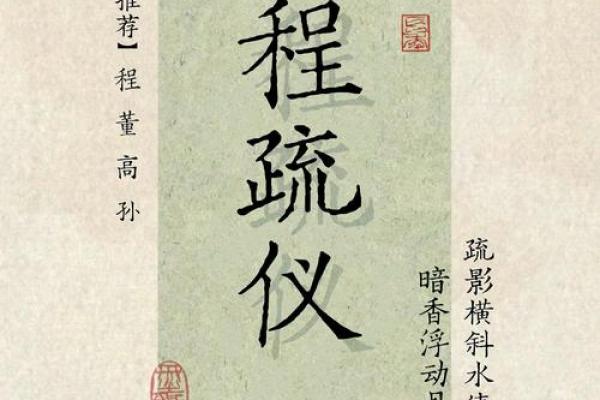 疏影横斜水
暗香浮动
程疏仪
推荐】程 董 高 孙